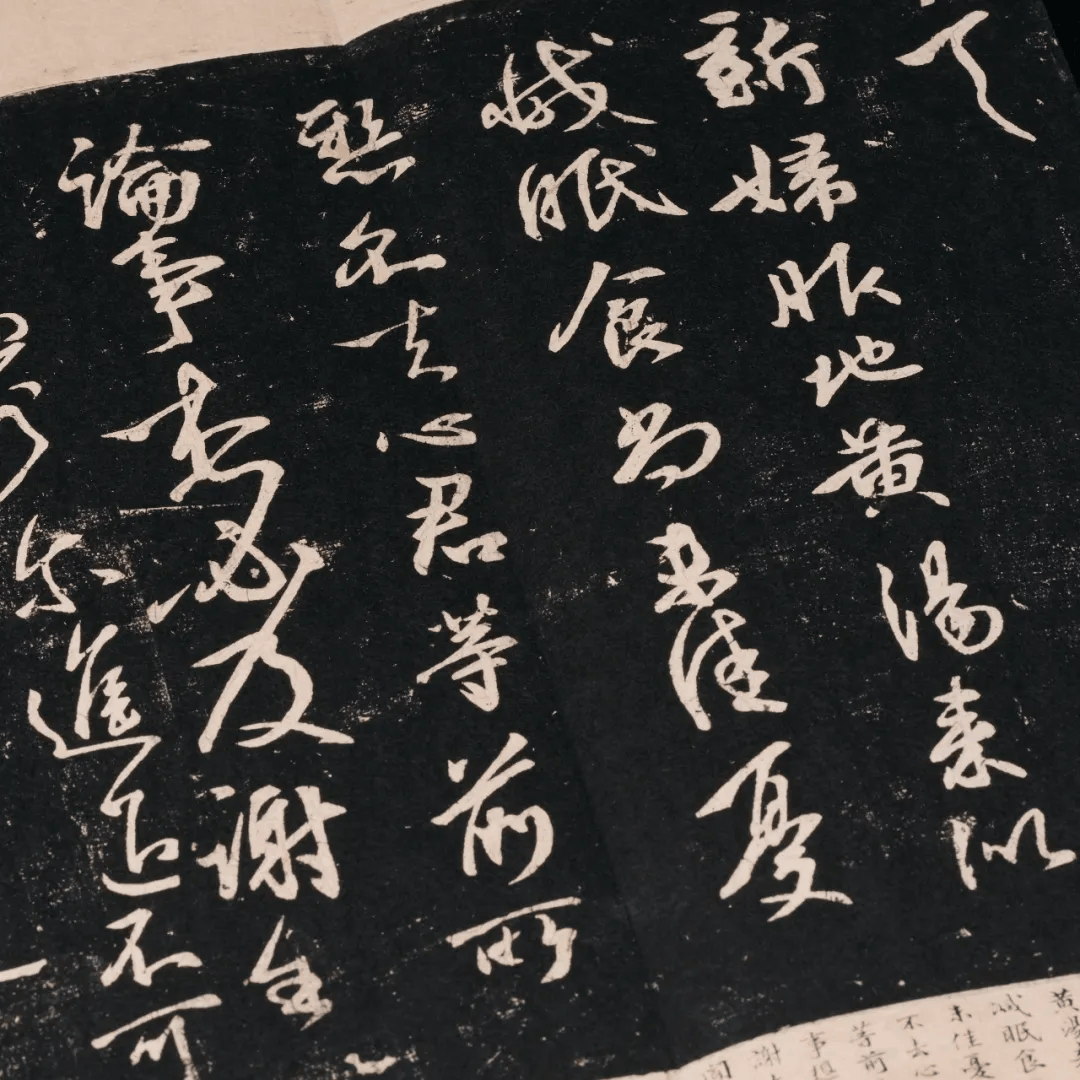 新婦服地黃湯來似
減眠食尚未佳憂
懸不去心君等前所
論事想必及謝生
爾進退不可
黃湯
減眠食
未佳憂
不去心
等前
事想
謝